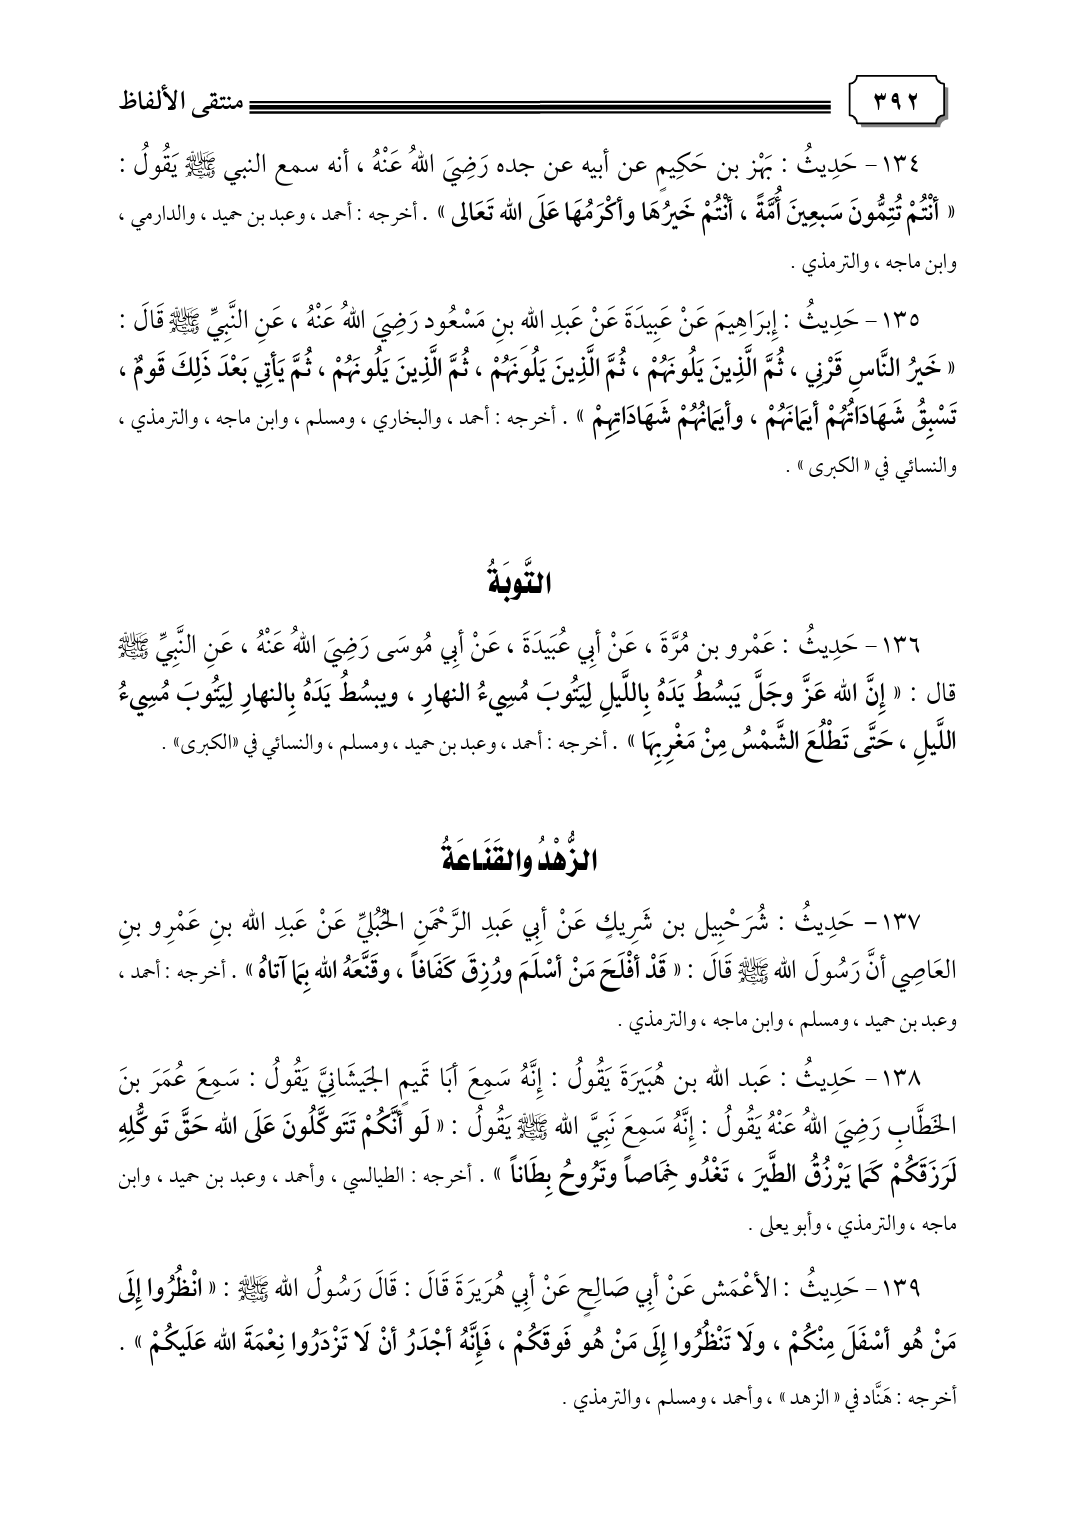 ٣٩٢ منتقى الألفاظ
١٣٤- حَدِيثُ : بَهْز بن حَكِيمٍ عن أبيه عن جده رَضِيَ اللهُ عَنْهُ ، أنه سمع النبي ﷺ يَقُولُ :
« أنْتُمْ تُتِمُّونَ سَبعِينَ أُمَّةً ، أنْتُمْ خَيرُهَا وأكْرَمُهَا عَلَى الله تَعَالى » . أخرجه : أحمد ، وعبد بن حميد ، والدارمي ،
وابن ماجه ، والترمذي .
١٣٥- حَدِيثُ : إبرَاهِيمَ عَنْ عَبِيدَةَ عَنْ عَبدِ الله بنِ مَسْعُود رَضِيَ اللهُ عَنْهُ ، عَنِ النَّبِيِّ ﷺ قَالَ :
« خَيرُ النَّاسِ قَرْنِي ، ثُمَّ الَّذِينَ يَلُونَهُمْ ، ثُمَّ الَّذِينَ يَلُونَهُمْ ، ثُمَّ الَّذِينَ يَلُونَهُمْ ، ثُمَّ يَأتِي بَعْدَ ذَلِكَ قَومٌ ،
تَسْبِقُ شَهَادَاتُهُمْ أيمَانَهُمْ ، وأيمَانُهُمْ شَهَادَاتِهِمْ » . أخرجه : أحمد ، والبخاري ، ومسلم ، وابن ماجه ، والترمذي ،
والنسائي في « الكبرى » .
التَّوبَةُ
١٣٦- حَدِيثُ : عَمْرو بن مُرَّةَ ، عَنْ أبي عُبَيدَةَ ، عَنْ أبي مُوسَى رَضِيَ اللهُ عَنْهُ ، عَنِ النَّبِيِّ ﷺ
قال : « إنَّ الله عَزَّ وجَلَّ يَبسُطُ يَدَهُ بِاللَّيلِ لِيَتُوبَ مُسِيءُ النهارِ ، ويبسُطُ يَدَهُ بِالنهارِ لِيَتُوبَ مُسِيءُ
اللَّيلِ ، حَتَّى تَطْلُعَ الشَّمْسُ مِنْ مَغْرِبِهَا » . أخرجه : أحمد ، وعبد بن حميد ، ومسلم ، والنسائي في «الكبرى» .
الزُّهْدُ والقَنَاعَةُ
١٣٧- حَدِيثُ : شُرَحْبِيل بن شَرِيكٍ عَنْ أبي عَبدِ الرَّحْمَنِ الحُبُليِّ عَنْ عَبدِ الله بنِ عَمْرِو بنِ
العَاصِي أنَّ رَسُولَ الله ﷺ قَالَ : « قَدْ أفْلَحَ مَنْ أسْلَمَ ورُزِقَ كَفَافاً ، وقَنَّعَهُ الله بِمَا آتاهُ » . أخرجه : أحمد ،
وعبد بن حميد ، ومسلم ، وابن ماجه ، والترمذي .
١٣٨- حَدِيثُ : عَبد الله بن هُبَيرَةَ يَقُولُ : إنَّهُ سَمِعَ أبَا تَمِيمٍ الجَيشَانيَّ يَقُولُ : سَمِعَ عُمَرَ بنَ
الخَطَّابِ رَضِيَ اللهُ عَنْهُ يَقُولُ : إنَّهُ سَمِعَ نَبِيَّ الله ﷺ يَقُولُ : « لَو أنَّكُمْ تَتَوكَّلُونَ عَلَى الله حَقَّ تَوكُّلِهِ
لَرَزَقَكُمْ كَمَا يَرْزُقُ الطَّيرَ ، تَغْدُو خِمَاصاً وتَرُوحُ بِطَاناً » . أخرجه : الطيالسي ، وأحمد ، وعبد بن حميد ، وابن
ماجه ، والترمذي ، وأبو يعلى .
١٣٩- حَدِيثُ : الأعْمَش عَنْ أبي صَالِحٍ عَنْ أبي هُرَيرَةَ قَالَ : قَالَ رَسُولُ الله ﷺ : « انْظُرُوا إلَى
مَنْ هُو أسْفَلَ مِنْكُمْ ، ولَا تَنْظُرُوا إلَى مَنْ هُو فَوقَكُمْ ، فَإنَّهُ أجْدَرُ أنْ لَا تَزْدَرُوا نِعْمَةَ الله عَلَيكُمْ » .
أخرجه : هَنَّاد في « الزهد » ، وأحمد ، ومسلم ، والترمذي .